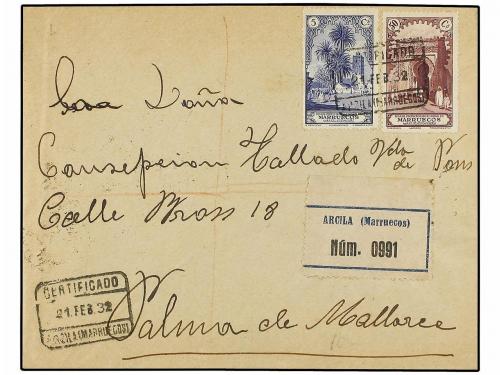 5 Cs
MARRUECOS
50 Cs
MARRUECOS
CERTIFICADO
21.FEB.32
ARCILA (MARRUECOS)
Doña
Consepcion Hallado Vda
de Pons
Calle Bross 18
ARCILA (Marruecos)
Núm. 0991
CERTIFICADO
21.FEB.32
ARCILA (MARRUECOS)
Palma de Mallorca